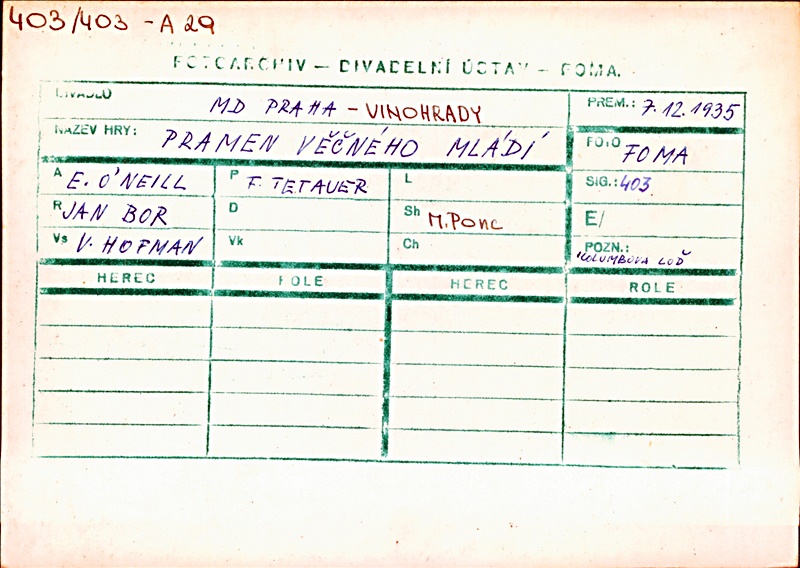 403/403 - A 29
FOTOARCHIV — DIVADELNÍ ÚSTAV — FOMA.
DIVADLO MD PRAHA - VINOHRADY PREM.: 7.12.1935
NÁZEV HRY: PRAMEN VĚČNÉHO MLÁDÍ FOTO FOMA
A E. O'NEILL P F. TETAUER L SIG.: 403
R JAN BOR D Sh M. PONC E/
Vs V. HOFMAN Vk Ch POZN.: KOLUMBOVA LOĎ
HEREC ROLE HEREC ROLE